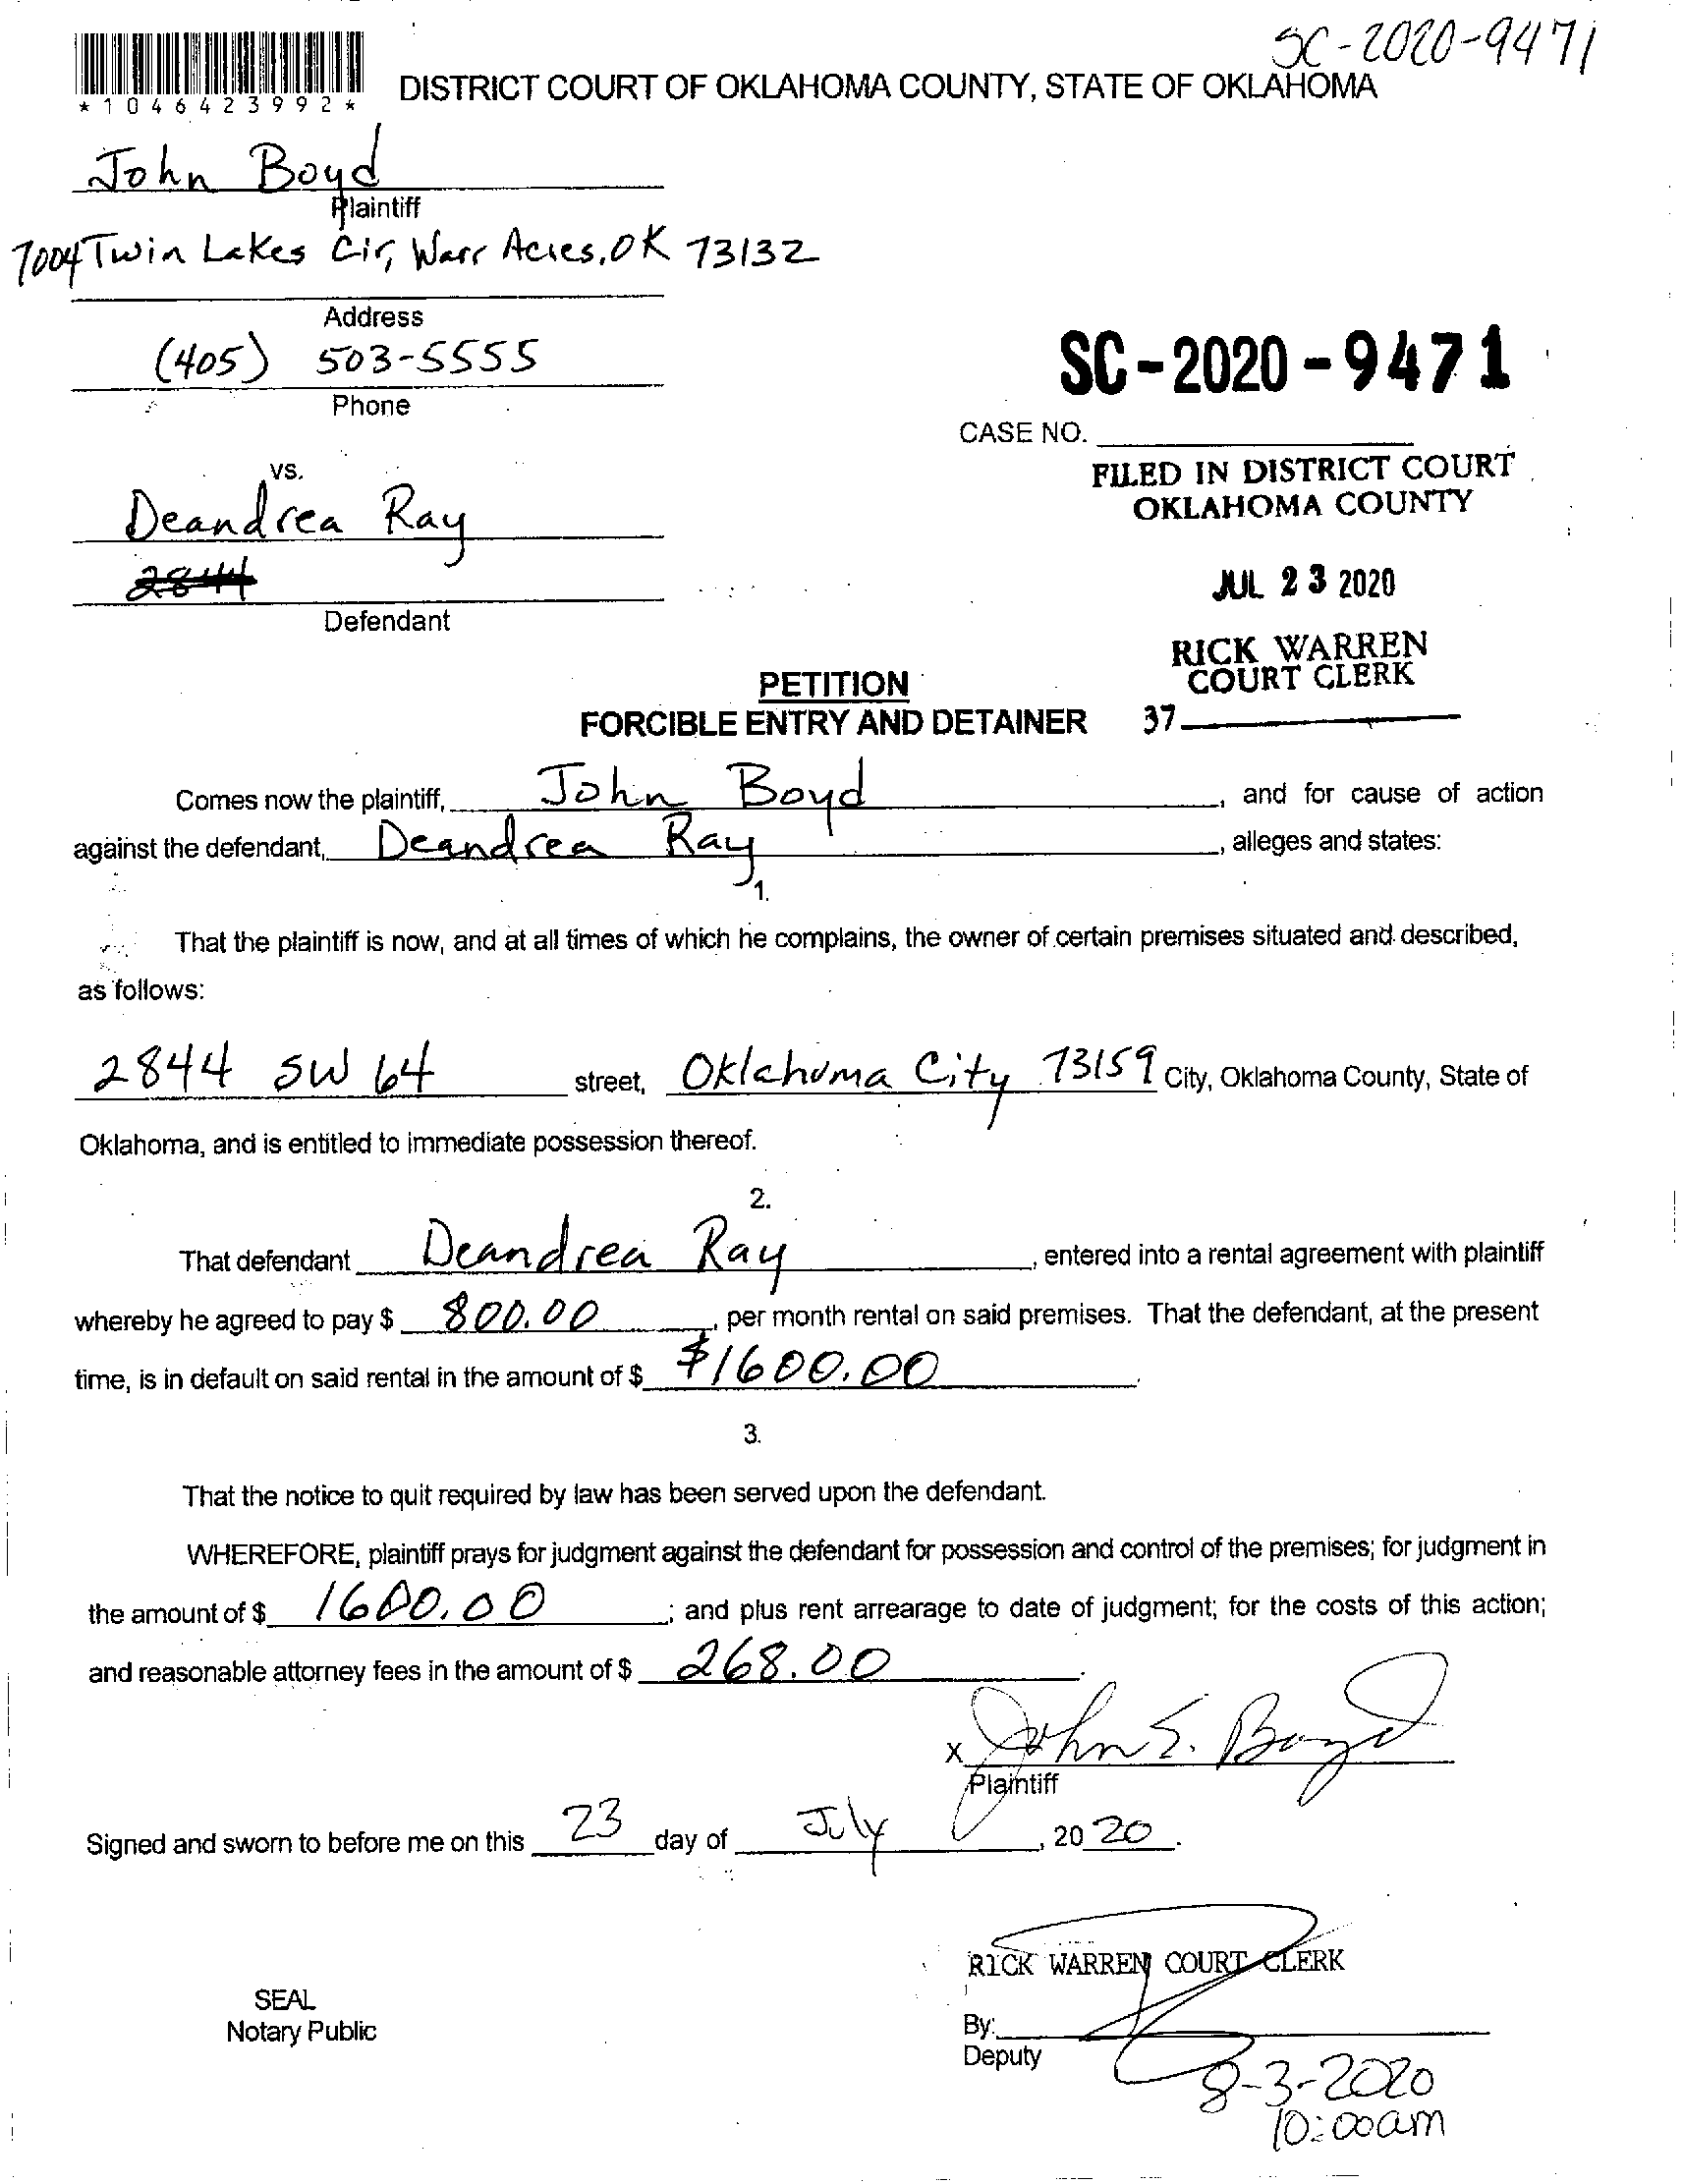 SC-2020-9471
*1046423992*
DISTRICT COURT OF OKLAHOMA COUNTY, STATE OF OKLAHOMA
John Boyd
Plaintiff
7004 Twin Lakes Cir, Warr Acres, OK 73132
Address
(405) 503-5555
Phone
SC-2020-9471
CASE NO.
vs.
FILED IN DISTRICT COURT
OKLAHOMA COUNTY
Deandrea Ray
2844
JUL 23 2020
Defendant
RICK WARREN
COURT CLERK
PETITION
FORCIBLE ENTRY AND DETAINER
37
Comes now the plaintiff, John Boyd, and for cause of action
against the defendant, Deandrea Ray, alleges and states:
1.
That the plaintiff is now, and at all times of which he complains, the owner of certain premises situated and described,
as follows:
2844 SW 64 street, Oklahoma City 73159 City, Oklahoma County, State of
Oklahoma, and is entitled to immediate possession thereof.
2.
That defendant Deandrea Ray, entered into a rental agreement with plaintiff
whereby he agreed to pay $ 800.00, per month rental on said premises. That the defendant, at the present
time, is in default on said rental in the amount of $ $1600.00.
3.
That the notice to quit required by law has been served upon the defendant.
WHEREFORE, plaintiff prays for judgment against the defendant for possession and control of the premises; for judgment in
the amount of $ 1600.00; and plus rent arrearage to date of judgment; for the costs of this action;
and reasonable attorney fees in the amount of $ 268.00.
x John E. Boyd
Plaintiff
Signed and sworn to before me on this 23 day of July, 2020.
RICK WARREN COURT CLERK
SEAL
Notary Public
By:
Deputy
8-3-2020
10:00am